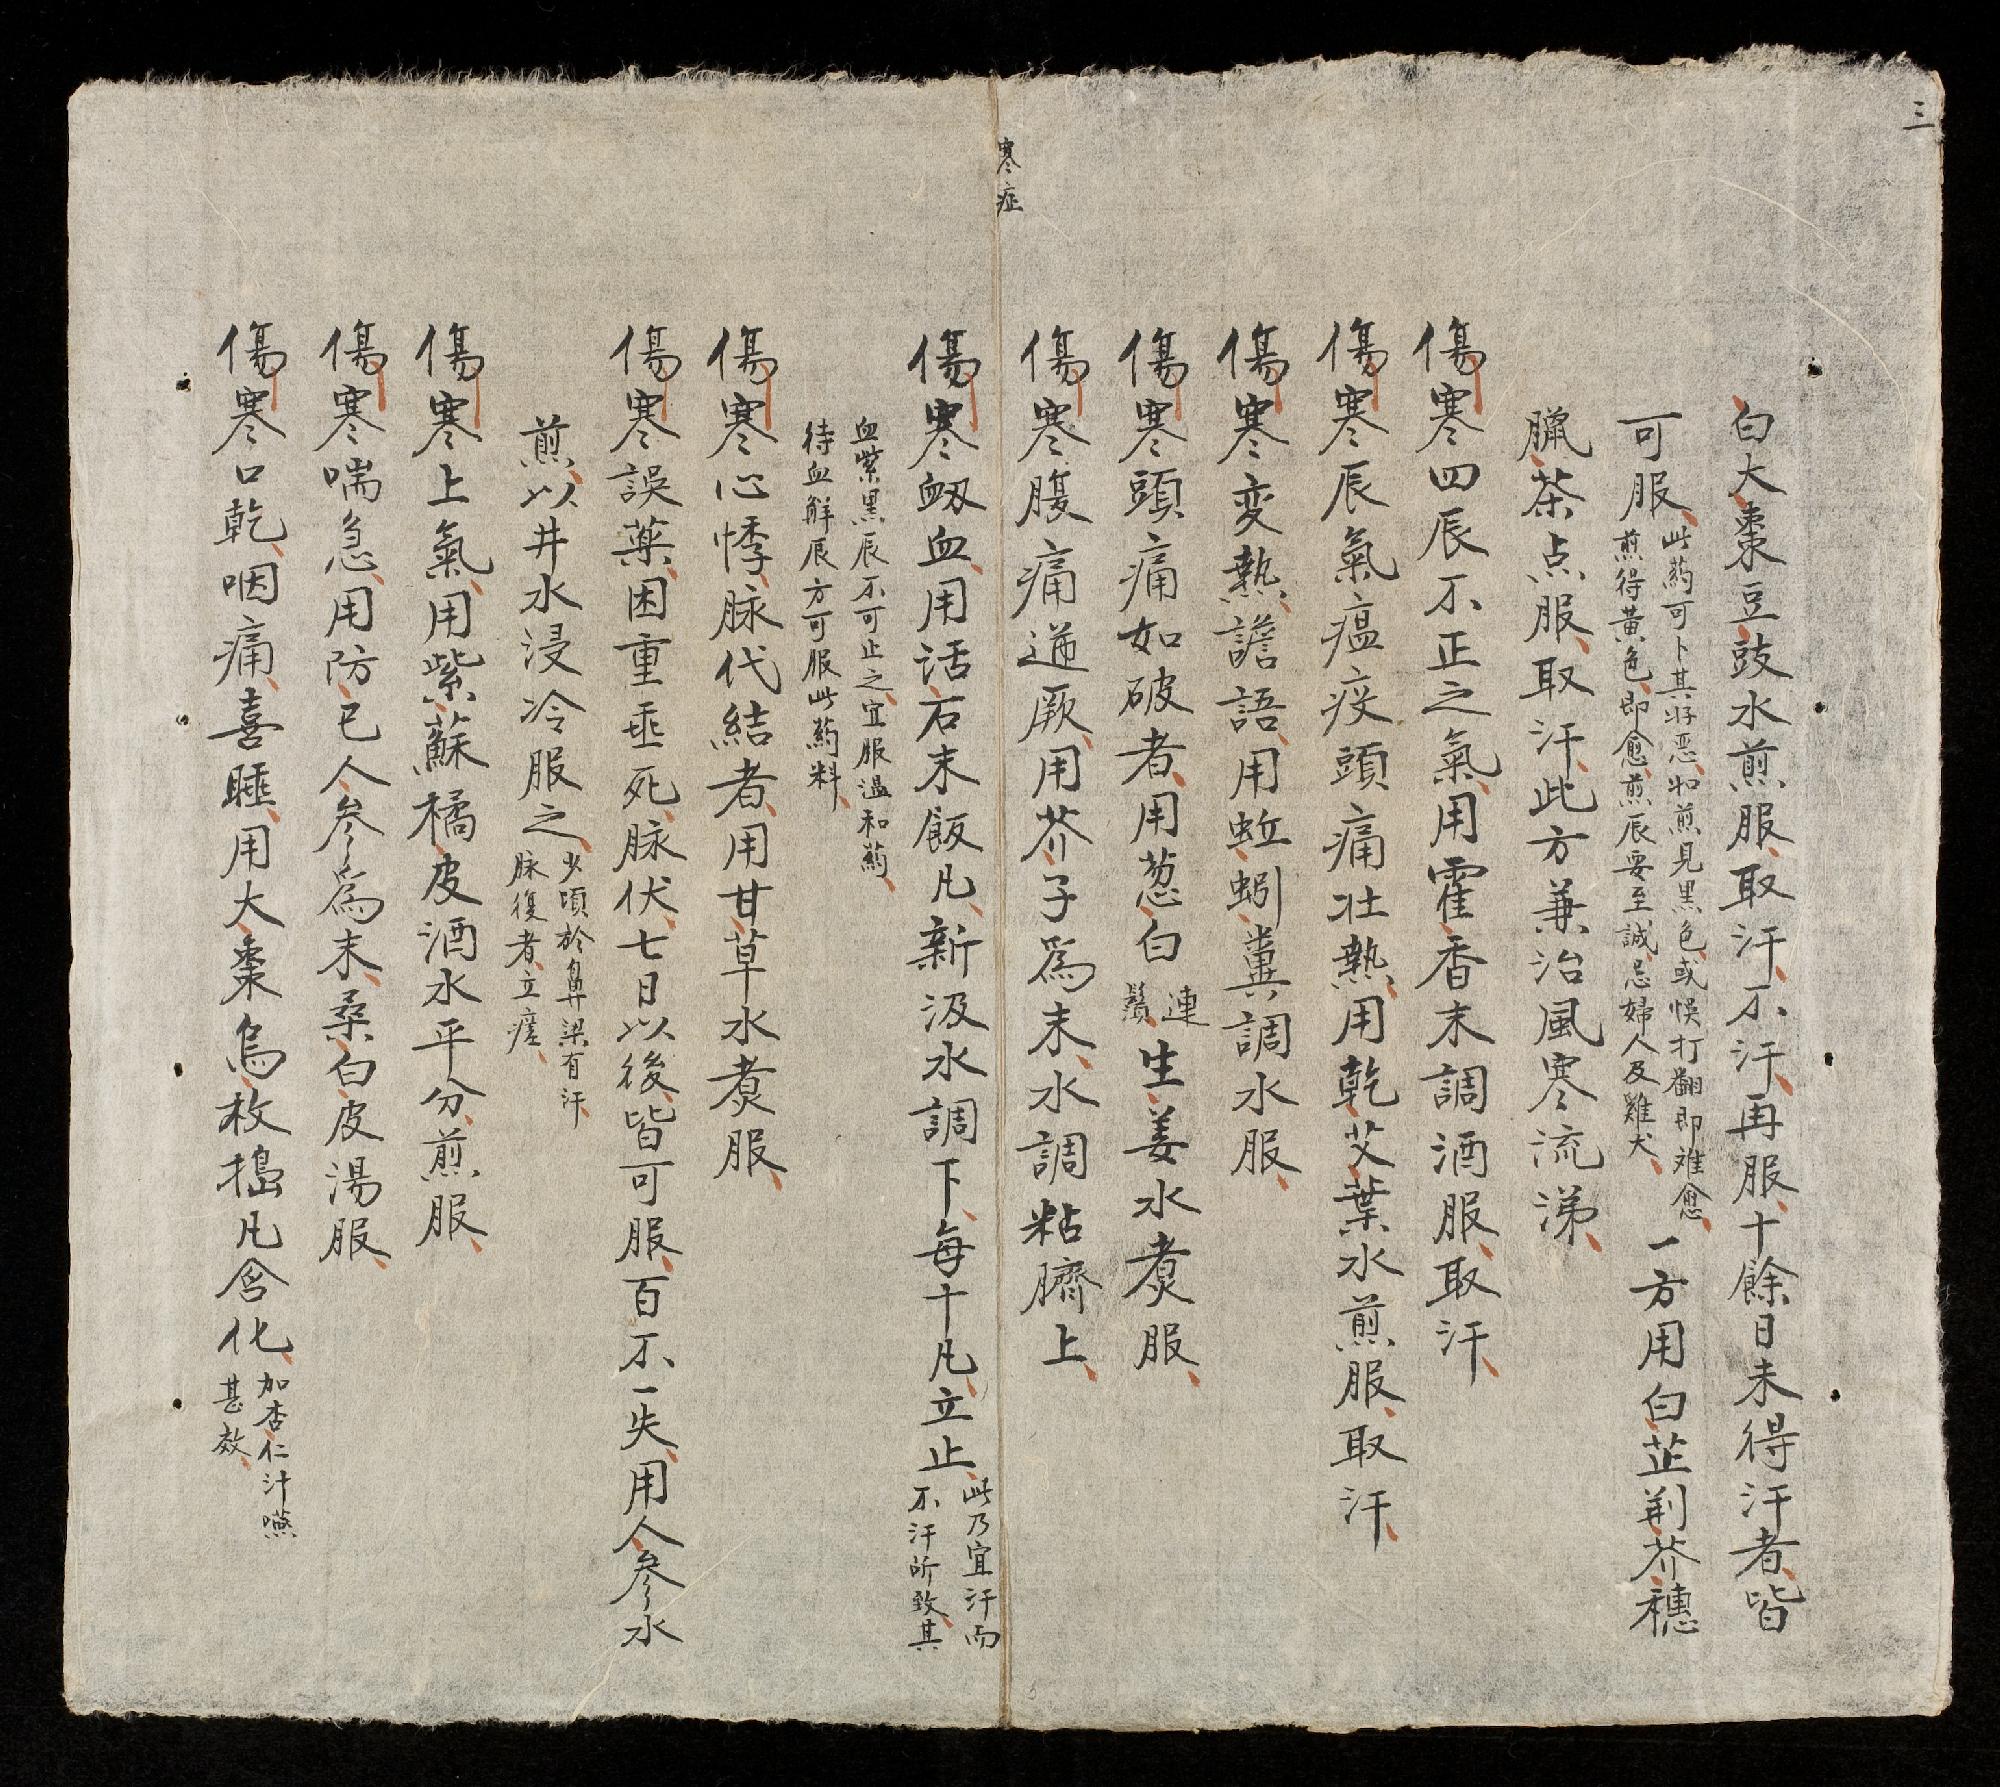 三
白大棗豆豉水煎服取汗不汗再服十餘日未得汗者皆
可服
此药可卜其将恶如煎見黑色或悞打翻即难愈
煎得黃色即愈煎辰要至誠忌婦人及雞犬
一方用白芷荆芥穗
臘茶点服取汗此方兼治風寒流涕
傷寒四辰不正之氣用霍香末調酒服取汗
傷寒辰氣瘟疫頭痛壮熱用乾艾葉水煎服取汗
傷寒变熱譫語用蚯蚓糞調水服
傷寒頭痛如破者用葱白
連
鬚
生姜水煮服
傷寒腹痛逆厥用芥子爲末水調粘臍上
寒症
傷寒衂血用活石末飯凢新汲水調下每十凢立止
此乃宜汗而
不汗所致其
血紫黑辰不可止之宜服温和药
待血鮮辰方可服此药料
傷寒心悸脉代結者用甘草水煮服
傷寒誤薬困重垂死脉伏七日以後皆可服百不一失用人参水
煎以井水浸冷服之
少頃於鼻梁有汗
脉復者立瘥
傷寒上氣用紫蘇橘皮酒水平分煎服
傷寒喘急用防已人参爲末桑白皮湯服
傷寒口乾咽痛喜睡用大棗烏枚搗凢含化
加杏仁汁嚥
甚效